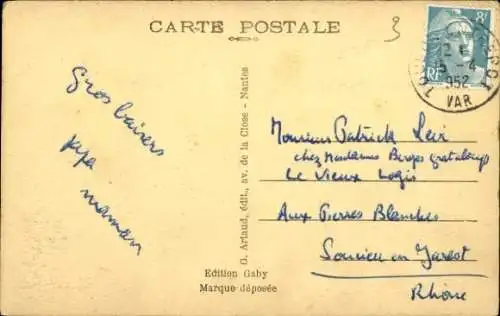 CARTE POSTALE
3
8F
RF
15-4
1952
VAR
Gros baisers
papa
maman
G. Artaud, édit., av. de la Close - Nantes
Monsieur Patrick
chez Mesdames Berger grataloup
Le Vieux Logis
Aux Pierres Blanches
Soucieu en Jarest
Rhône
Edition Gaby
Marque déposée